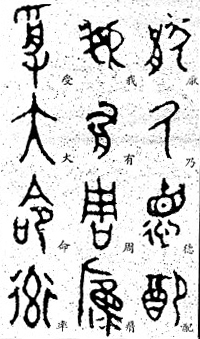 厭乃德配
我有周膺
受大命率